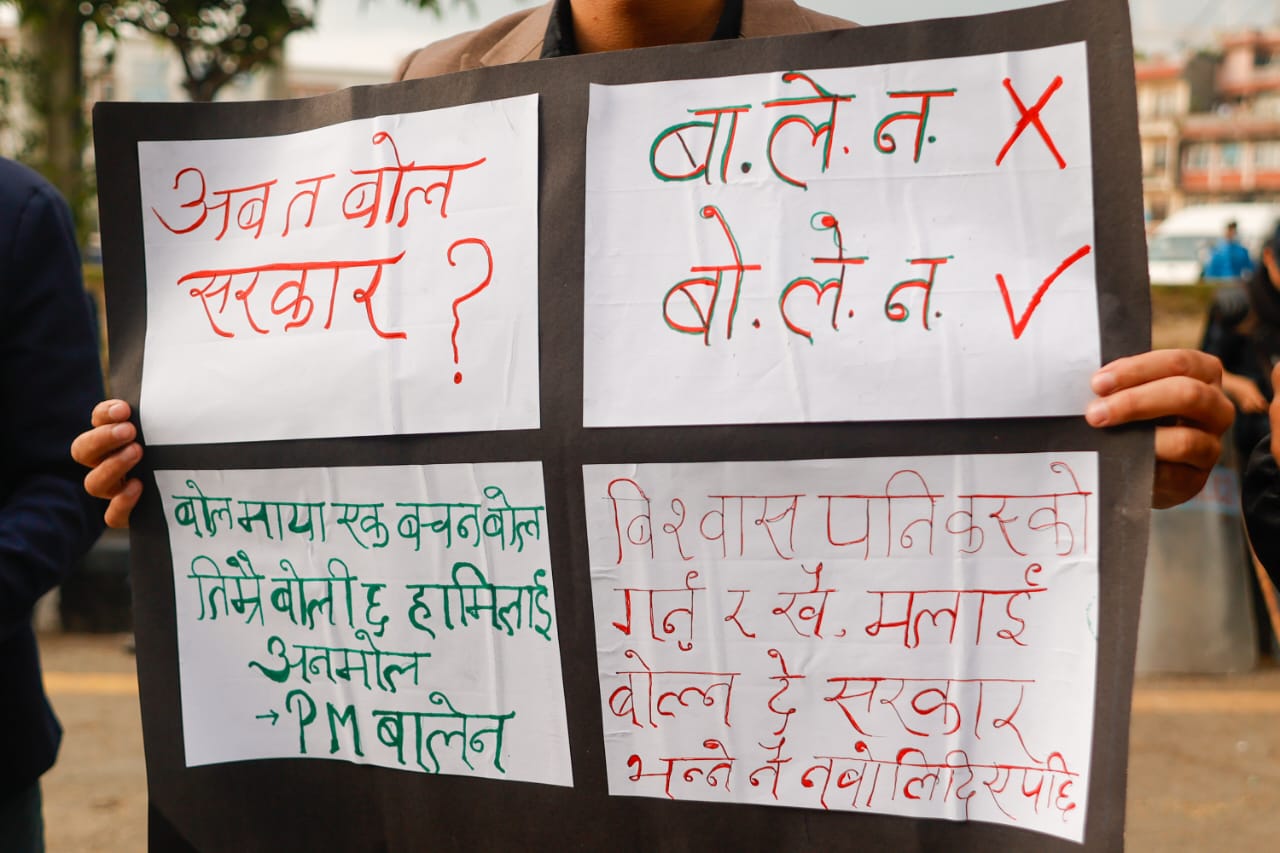 अब त बोल
सरकार ?
बा.ले.न. X
बो.ले.न. ✓
बोल माया एक बचन बोल
तिम्रै बोली छ हामिलाई
अनमोल
→ PM बालेन
बिश्वास पनि कस्को
गर्नु र खै, मलाई
बोल्न दे सरकार
भन्ने नै नबोलिदिए पछि